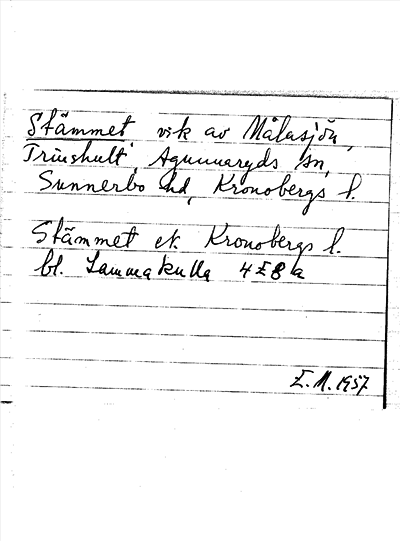 Stämmet vik av Målasjön,
Trinshult Agunnaryds sn,
Sunnerbo hd, Kronobergs l.
Stämmet ek. Kronobergs l.
bl. Lammakulla 4E8a
E.M. 1957